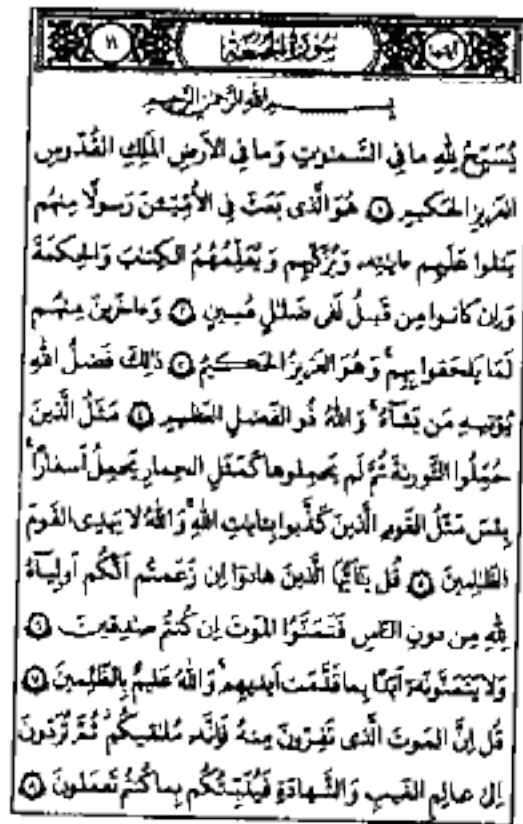 ١١ سورة الجمعة آياتها
بسم الله الرحمن الرحيم
يُسَبِّحُ لِلَّهِ ما فِي السَّمـٰوٰتِ وَما فِي الأَرضِ المَلِكِ القُدّوسِ
العَزيزِ الحَكيمِ ﴿١﴾ هُوَ الَّذى بَعَثَ فِى الأُمِّيّـۧنَ رَسولًا مِنهُم
يَتلوا عَلَيهِم ءايـٰتِهِ وَيُزَكّيهِم وَيُعَلِّمُهُمُ الكِتـٰبَ وَالحِكمَةَ
وَإِن كانوا مِن قَبلُ لَفى ضَلـٰلٍ مُبينٍ ﴿٢﴾ وَءاخَرينَ مِنهُم
لَمّا يَلحَقوا بِهِم ۚ وَهُوَ العَزيزُ الحَكيمُ ﴿٣﴾ ذٰلِكَ فَضلُ اللَّهِ
يُؤتيهِ مَن يَشاءُ ۚ وَاللَّهُ ذُو الفَضلِ العَظيمِ ﴿٤﴾ مَثَلُ الَّذينَ
حُمِّلُوا التَّورىٰةَ ثُمَّ لَم يَحمِلوها كَمَثَلِ الحِمارِ يَحمِلُ أَسفارًا ۚ
بِئسَ مَثَلُ القَومِ الَّذينَ كَذَّبوا بِـٔايـٰتِ اللَّهِ ۚ وَاللَّهُ لا يَهدِى القَومَ
الظّـٰلِمينَ ﴿٥﴾ قُل يـٰأَيُّهَا الَّذينَ هادوا إِن زَعَمتُم أَنَّكُم أَولِياءُ
لِلَّهِ مِن دونِ النّاسِ فَتَمَنَّوُا المَوتَ إِن كُنتُم صـٰدِقينَ ﴿٦﴾
وَلا يَتَمَنَّونَهُ أَبَدًا بِما قَدَّمَت أَيديهِم ۚ وَاللَّهُ عَليمٌ بِالظّـٰلِمينَ ﴿٧﴾
قُل إِنَّ المَوتَ الَّذى تَفِرّونَ مِنهُ فَإِنَّهُ مُلـٰقيكُم ۖ ثُمَّ تُرَدّونَ
إِلىٰ عالِمِ الغَيبِ وَالشَّهادَةِ فَيُنَبِّئُكُم بِما كُنتُم تَعمَلونَ ﴿٨﴾